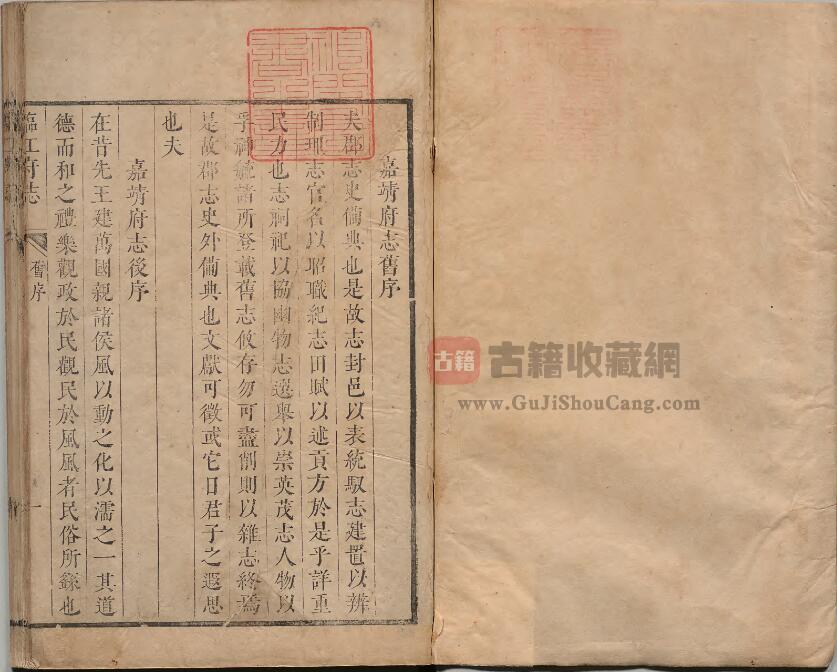 嘉靖府志舊序
夫郡志史備典也是故志封邑以表統馭志建置以辨
制理志官名以昭職紀志田賦以述貢方於是乎詳重
民力也志祠祀以協幽物志選舉以崇英茂志人物以
乎統諸所登載舊志攸存勿可盡削則以雜志終焉
是故郡志史外備典也文獻可徵或它日君子之遐思
也夫
嘉靖府志後序
在昔先王建萬國親諸侯風以動之化以濡之一其道
德而和之禮樂觀政於民觀民於風風者民俗所繇也
臨江府志
舊序
一
古籍
古籍收藏網
www.GuJiShouCang.com